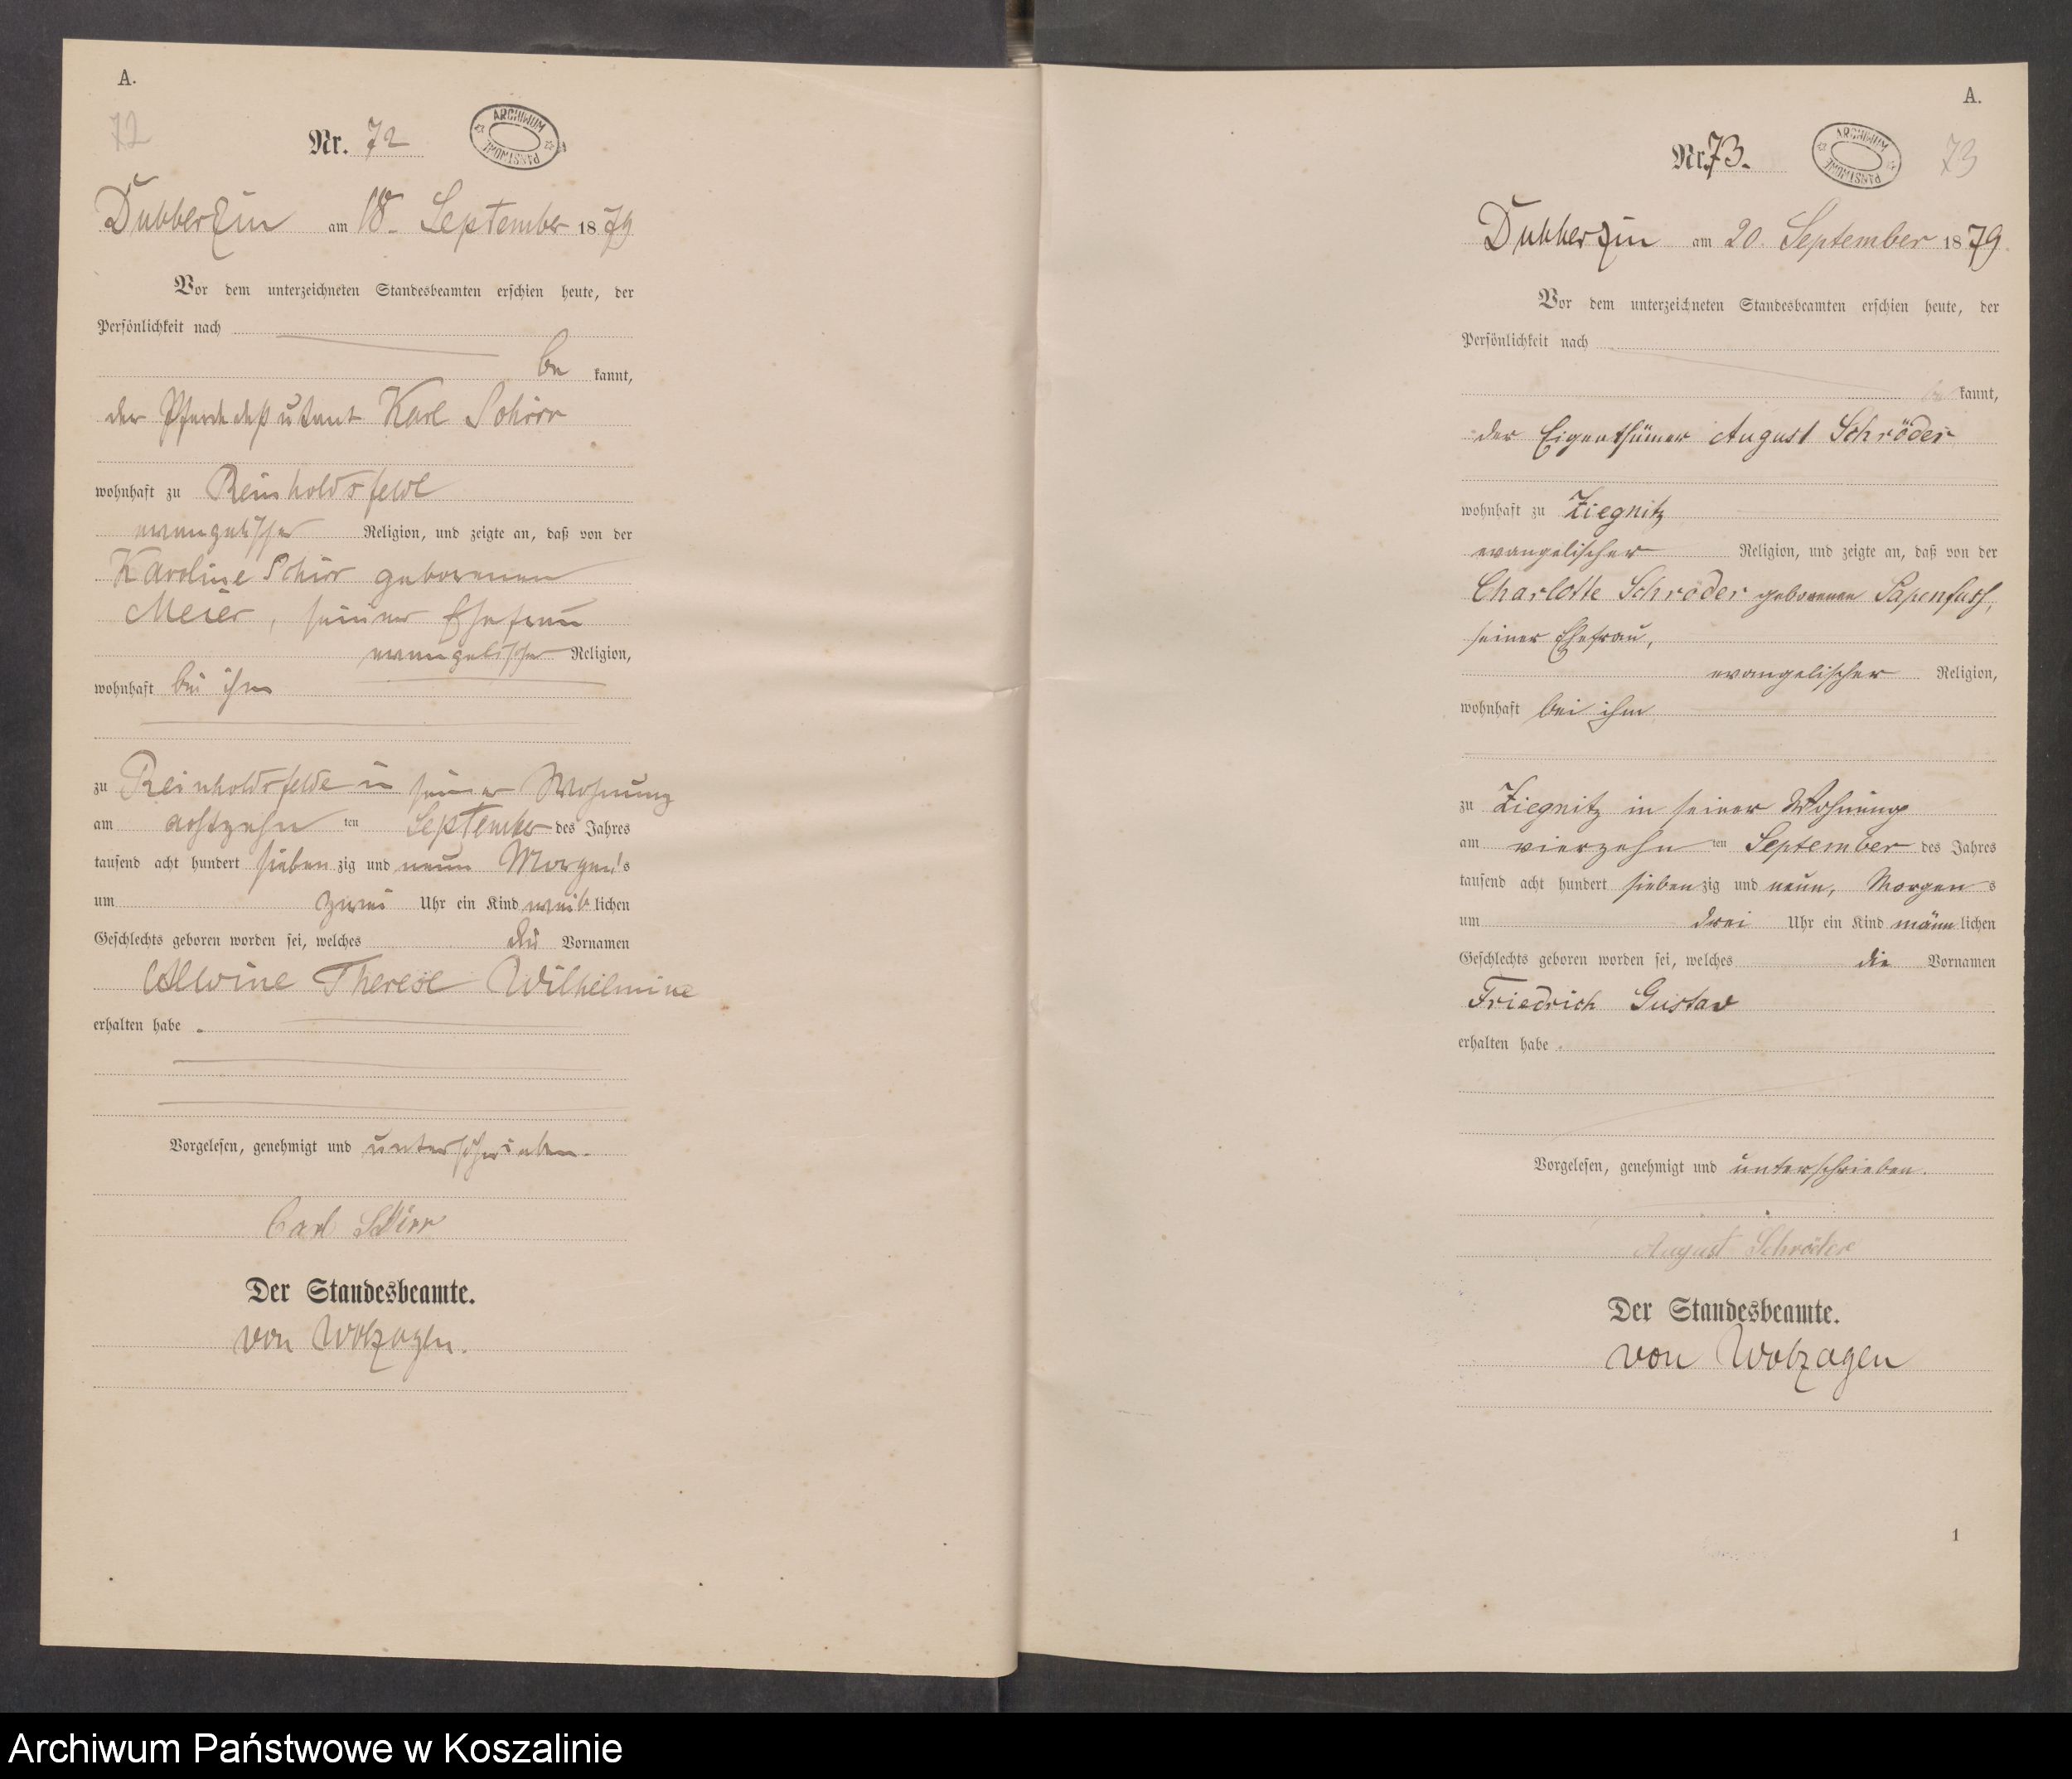 A.
72
Nr. 72
ARCHIWUM PAŃSTWOWE
Dubberzin am 18. September 1879
Vor dem unterzeichneten Standesbeamten erschien heute, der
Persönlichkeit nach
be kannt,
der Pferdedeputant Karl Schirr
wohnhaft zu Reinholdsfelde
evangelischer Religion, und zeigte an, daß von der
Karoline Schirr geborenen
Meier, seiner Ehefrau
evangelischer Religion,
wohnhaft bei ihm
zu Reinholdsfelde in seiner Wohnung
am achtzehn ten September des Jahres
tausend acht hundert sieben zig und neun Morgens
um zwei Uhr ein Kind weib lichen
Geschlechts geboren worden sei, welches die Vornamen
Alwine Therese Wilhelmine
erhalten habe.
Vorgelesen, genehmigt und unterschrieben.
Carl Schirr
Der Standesbeamte.
von Wolzogen.
A.
Nr. 73.
ARCHIWUM PAŃSTWOWE
73
Dubberzin am 20. September 1879.
Vor dem unterzeichneten Standesbeamten erschien heute, der
Persönlichkeit nach
be kannt,
der Eigenthümer August Schröder
wohnhaft zu Ziegnitz
evangelischer Religion, und zeigte an, daß von der
Charlotte Schröder geborenen Papenfuss,
seiner Ehefrau,
evangelischer Religion,
wohnhaft bei ihm
zu Ziegnitz in seiner Wohnung
am vierzehn ten September des Jahres
tausend acht hundert sieben zig und neun, Morgens
um drei Uhr ein Kind männ lichen
Geschlechts geboren worden sei, welches die Vornamen
Friedrich Gustav
erhalten habe.
Vorgelesen, genehmigt und unterschrieben.
August Schröder
Der Standesbeamte.
von Wolzogen
1
Archiwum Państwowe w Koszalinie